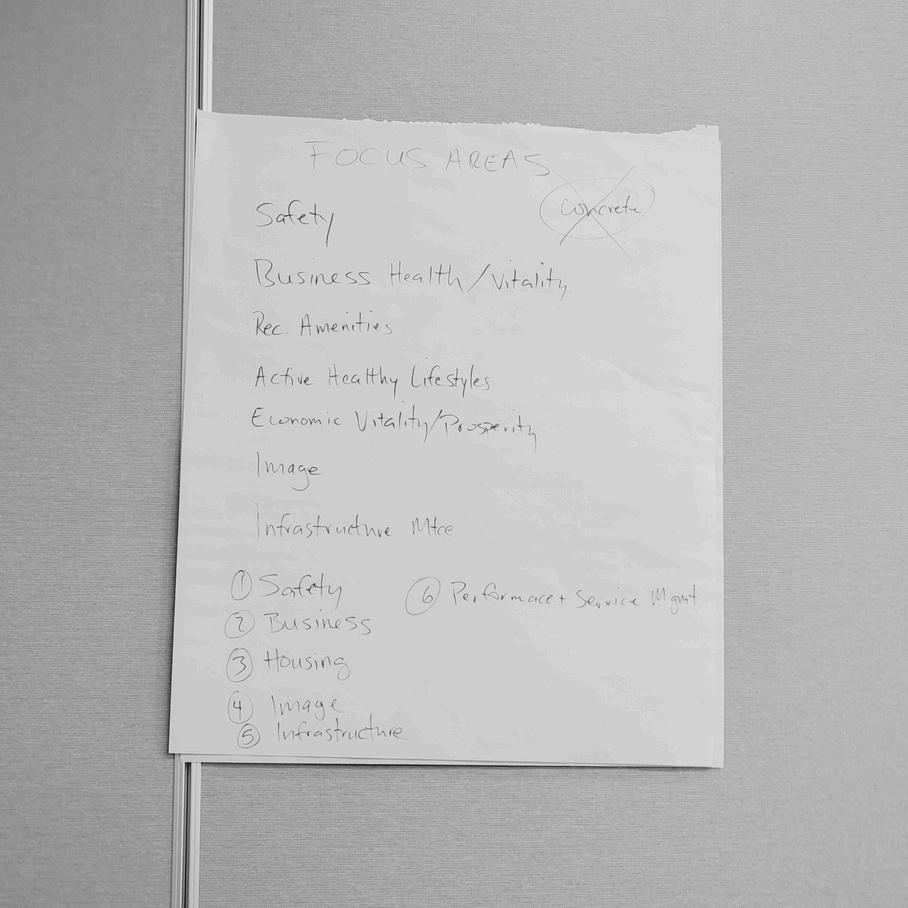 FOCUS AREAS
concrete
Safety
Business Health/Vitality
Rec. Amenities
Active Healthy Lifestyles
Economic Vitality/Prosperity
Image
Infrastructure Mtce
① Safety
② Business
③ Housing
④ Image
⑤ Infrastructure
⑥ Performace + Service Mgmt